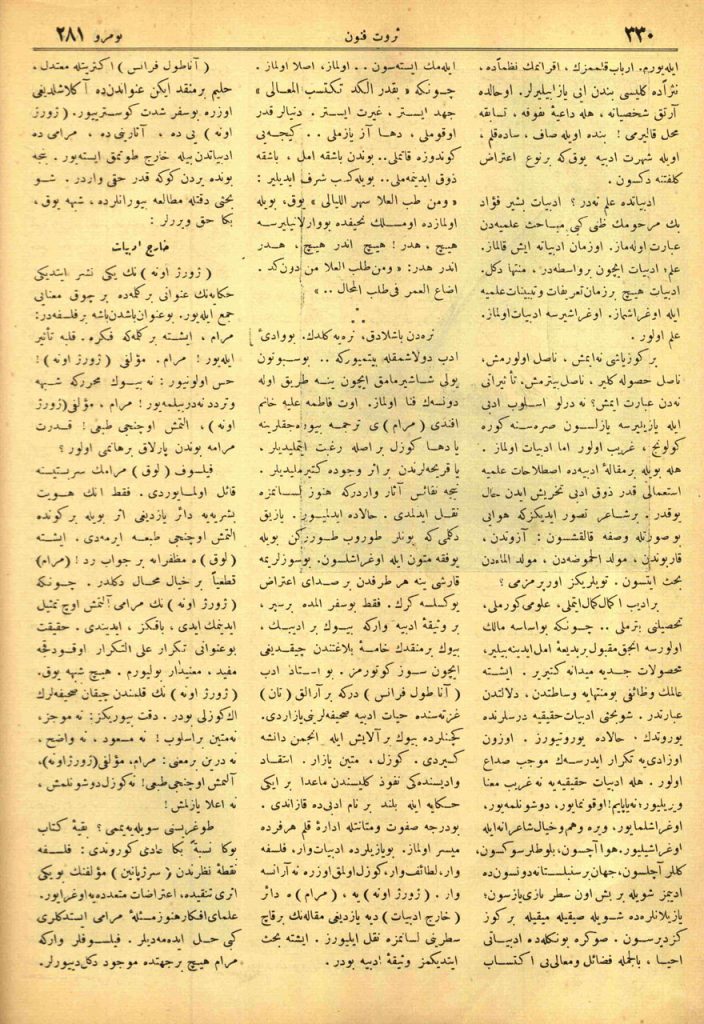 ٣٣٠
ثروت فنون
نومرو ٢٨١
ايله‌يورم. ارباب قلممزك ، اقرانمك نظماً ده ،
نثراً ده كليسى بندن ايى يازابيليرلر. اوحالده
آرتق شخصيانه ، هله داعيهٔ تفوقه ، تسابقه
محل قاليرمى ! بنده اويله صاف ، ساده قلم ،
اويله شهرت ادبيه يوق كه برنوع اعتراض
كلفتنه دكسون .
ادبياتده علم نه‌در ؟ ادبيات بشير فؤاد
بك مرحومك ظنى كبى مباحث علميه‌دن
عبارت اوله‌ماز. اوزمان ادبياته ايش قالماز.
علم؛ ادبيات ايچون برواسطه‌در ، منتها دكل.
ادبيات هيچ برزمان تعريفات و تبينات علميه
ايله اوغراشماز. اوغراشيرسه ادبيات اولماز.
علم اولور .
بر كوزياشى نه‌ايمش ، ناصل اولورمش،
ناصل حصوله كلير ، ناصل بيترمش، تأثيراتى
نه‌دن عبارت ايمش؟ نه درلو اسلوب ادبى
ايله يازيليرسه يازلسون صره‌سنه كوره
كولونج ، غريب اولور اما ادبيات اولماز .
هله بويله برمقالهٔ ادبيه‌ده اصطلاحات علميه
استعمالى قدر ذوق ادبى تخريش ايدن حال
يوقدر . برشاعر تصور ايديكزكه هوايى
بو صورتله وصفه قالقشسون : آزوتدن ،
قاربوندن ، مولد الحموضه‌دن ، مولد الماءدن
بحث ايتسون . تويلريكز اورپرمزمى ؟
بر اديب اكمال كمال ايتملى، علومى كورملى،
تحصيلنى بترملى .. چونكه بواساسه مالك
اولورسه انجق مقبول بربديعهٔ امل ايدينه‌بيلير،
محصولات جديه ميدانه كتيرير . ايشته
علمك وظائفى بومنتهايه وساطتدن ، دلالتدن
عبارتدر. شو بحثى ادبيات حقيقيه درسلرنده
يوروتدك ؛ حالاده يوروتيورز . اوزون
اوزادى‌يه تكرار ايدرسه‌ك موجب صداع
اولور . هله ادبيات حقيقيه‌يه نه غريب معنا
ويريليور؛ نه‌ياپايم! اوقونمايور، دوشونلمه‌يور،
اوغراشلمايور، ويره وهم وخيال شاعرانه‌ايله
اوغراشيليور. هوا آچسون، بلوطلر سوكسون،
كللر آچلسون، جهان برسنبلستانه دونسون ده
اديبمز شويله بر بش اون سطر يازى يازسون؛
يازيلانلرده شويله صيقيله ميقيله بر كوز
كزديرسون . صوكره بونكله‌ده ادبياتى
احيا ، بالجمله فضائل ومعالى‌يى اكتساب
ايله‌مك ايسته‌سون .. اولماز، اصلا اولماز .
چونكه « بقدر الكد تكتسب المعالى »
جهد ايستر ، غيرت ايستر . دنيالر قدر
اوقوملى ، دها آز يازملى .. كيجه‌يى
كوندوزه قاتملى.. بوندن باشقه امل ، باشقه
ذوق ايدينمه‌ملى.. بويله كسب شرف ايديلير :
« ومن طلب العلا سهر الليالى » يوق، بويله
اولمازده اوملك نحيفده يووارلانيليرسه
هيچ ، هدر ! هيچ اندر هيچ ، هدر
اندر هدر: « ومن طلب العلا من دون كد .
اضاع العمر فى طلب المحال .. »
نره‌دن باشلادق، نره‌يه كلدك. بووادئ
ادب دولاشمقله بيتميوركه .. بوسبوتون
يولى شاشيرمامق ايچون ينه طريق اوله
دونسه‌ك فنا اولماز. اوت فاطمه عليه خانم
افندى (مرام) ى ترجمه بيوره‌جقلرينه
يا دها كوزل بر اصله رغبت ايتمليديلر ،
يا قريحه‌لرندن بر اثر وجوده كتيرمليديلر .
نيجه نفائس آثار واردركه هنوز لسانمزه
نقل ايدلمدى . حالاده ايدلميور . يازيق
دكلمى كه بونلر طوروب طوررركن بويله
يوفقه متون ايله اوغراشلسون. بوسوزلريمه
قارشى ينه هر طرفدن بر صداى اعتراض
يوكسلسه كرك. فقط بوسفر المده برسپر ،
بر وثيقهٔ ادبيه واركه بيوك بر اديبك ،
بيوك برمنقدك خامهٔ بلاغتندن چيقديغى
ايچون سوز كوتورمز . بو استاذ ادب
( آناطول فرانس ) دركه بر آرالق ( تان )
غزته‌سنده حيات ادبيه صحيفه‌لرينى يازاردى.
كچنلرده بيوك بر آلايش ايله انجمن دانشه
كيردى . كوزل ، متين يازار . انتقاد
واديسنده كى نفوذ كليسندن ماعدا بر ايكى
حكايه ايله بلند بر نام ادبى ده قازاندى .
بودرجه صفوت ومتانتله ادارهٔ قلم هرفرده
ميسر اولماز. بويازيلرده ادبيات وار، فلسفه
وار، لطائف وار، كوزل اولمق اوزره نه آرانسه
وار . ( ژورژ اونه ) يه ، ( مرام ) ه دائر
( خارج ادبيات ) ديه يازديغى مقاله‌نك برقاچ
سطرينى لسانمزه نقل ايليورز . ايشته بحث
ايتديكمز وثيقهٔ ادبيه بودر .
( آناطول فرانس ) اكثريتله معتدل ،
حليم برمنقد ايكن عنواندن ده آكلاشلديغى
اوزره بوسفر شدت كوستريور. ( ژورژ
اونه ) يى ده ، آثارينى ده ، مرامى ده
ادبياتدن بيله خارج طوتمق ايسته‌يور . نيجه
بونده بردن كوكه قدر حقى واردر . شو
بحثى دقتله مطالعه بيورانلرده ، شبهه يوق ،
بكا حق ويررلر :
خارج ادبيات
( ژورژ اونه ) نك يكى نشر ايتديكى
حكايه‌نك عنوانى بركله‌ده پر چوق معنايى
جمع ايله‌يور. بوعنوان باشدن باشه برفلسفه‌در:
مرام ، ايشته بر كله كه فكره، قلبه تأثير
ايله‌يور ! مرام . مؤلفى ( ژورژ اونه ) !
حس اولنيور : نه بيوك محرركه شبهه
وتردد نه‌در بيلمه‌يور! مرام ، مؤلفى (ژورژ
اونه) ، التمش اوچنجى طبعى ! قدرت
مرامه بوندن پارلاق برهانمى اولور ؟
فيلسوف ( لوق ) مرامك سربستيسنه
قائل اولمايوردى . فقط انك هويت
بشريه‌يه دائر يازديغى اثر بويله بركونده
التمش اوچنجى طبعه ايرمه‌دى . ايشته
( لوق ) ه مظفرانه بر جواب رد ! (مرام)
قطعياً بر خيال محال دكلدر . چونكه
( ژورژ اونه ) نك مرامى آلتمش اوچ تمثيل
ايدينمك ايدى ، باقكز ، ايدبندى . حقيقت
بوعنوانى تكرار على التكرار اوقودقجه
مفيد ، معنيدار بوليورم . هيچ شبهه يوق.
( ژورژ اونه ) نك قلمندن چيقان صحيفه‌لرك
اك كوزلى بودر . دقت بيوريكز: نه موجز،
نه متين براسلوب ! نه مسعود ، نه واضح ،
نه درين برمعنى: مرام، مؤلفى (ژورژ اونه)،
آلتمش اوچنجى طبعى! نه كوزل دوشونلمش،
نه اعلا يازلمش !
طوغريسنى سويله‌يه‌يممى ؟ بقيهٔ كتاب
بوكا نسبةً بكا عادى كوروندى : فلسفه
نقطهٔ نظرندن ( سرژپانين ) مؤلفنك بو يكى
اثرى تنقيده، اعتراضات متعدده‌يه اوغرايور.
علماى افكار هنوز مسئلهٔ مرامى ايستدكلرى
كبى حل ايده‌مه‌ديلر . فيلسوفلر واركه
مرام هيچ برجهتده موجود دكل ديیورلر.